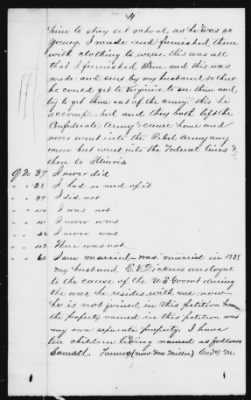 4
him to stay at school, as he was so
young, I made and furnished them
with clothing to wear. this was all
that I furnished them and this was
made and sent by my husband, so that
he could get to Virginia to see them and
try to get them out of the army this he
accomp and they both left the
Confederate Army & came home and
never went into the Rebel Army any
more but went into the Federal lines &
then to Illinois
Q No 37 I never did
" " 31 I had no need of it
" " 37 I did not
" " I was not
" " I never was
" " I never was
" " There was not
" " 60 I am married was married in
my husband was loyal
to the cause of the U S Govmt during
the war he resides with me now
he is not joined in this petition because
the property named in this petition was
my own separate property. I have
ten children living named as follows